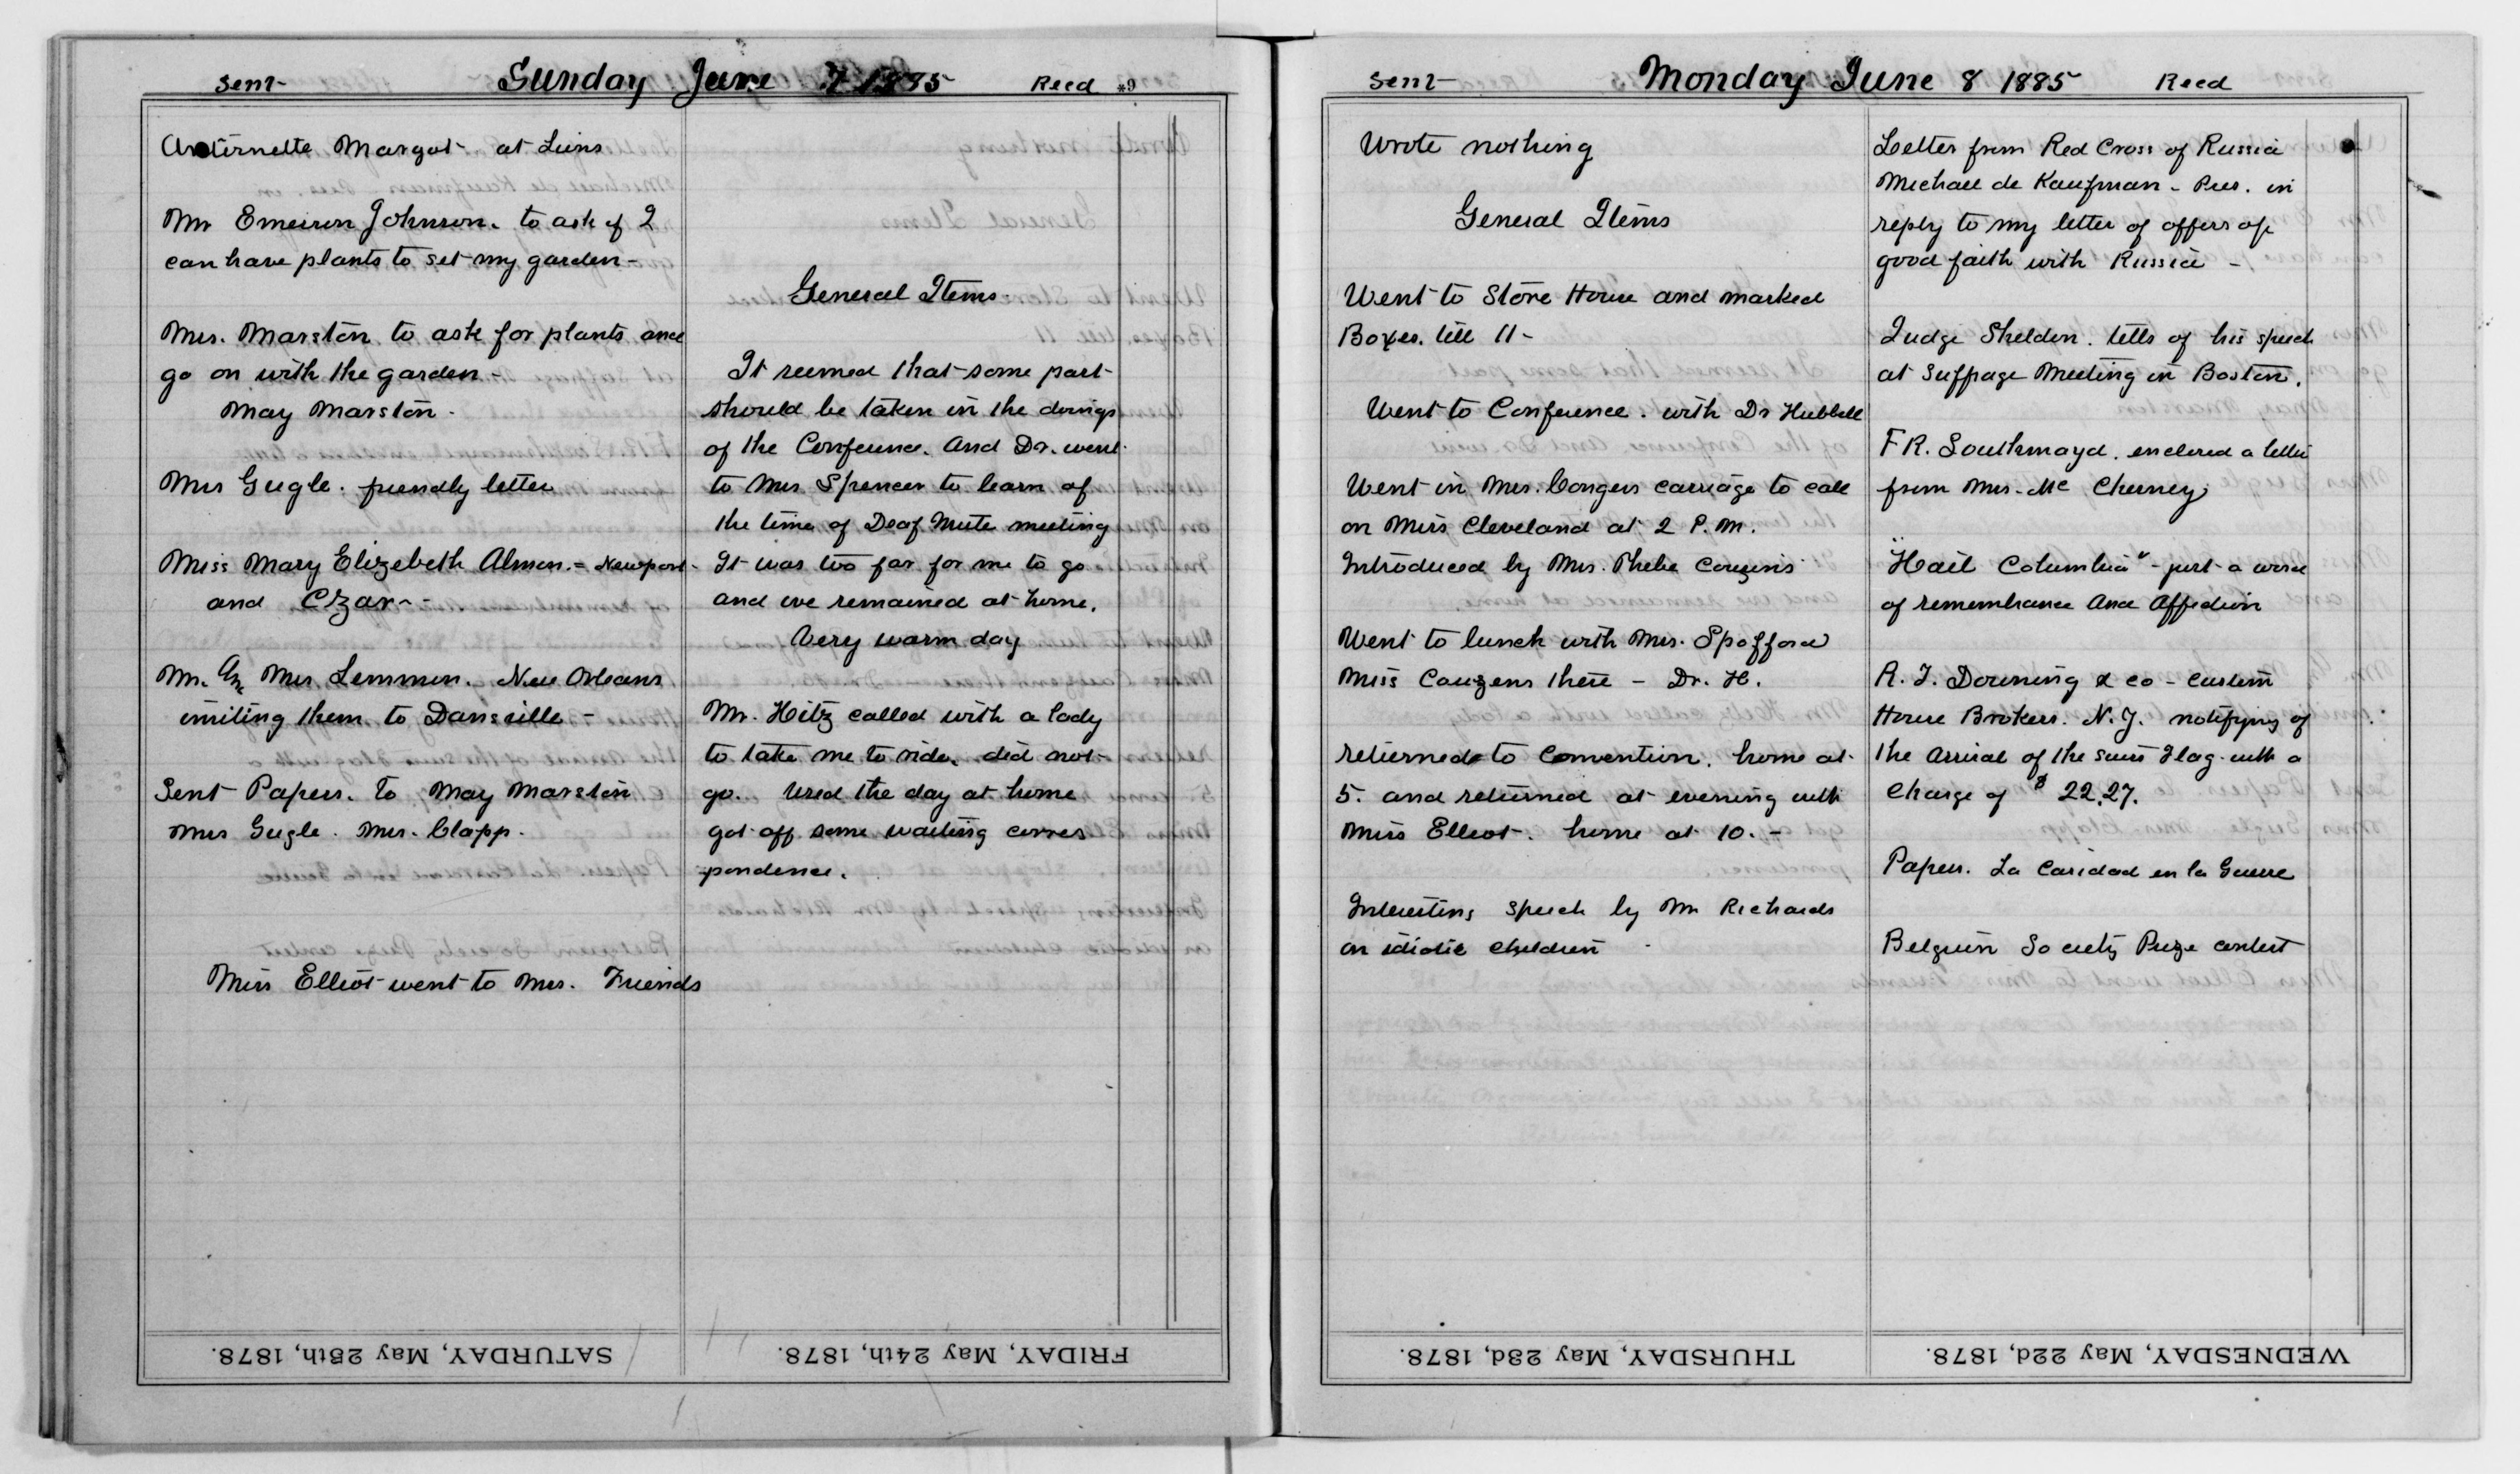 Sent Sunday June 7 1885 Recd
Antoinette Margot at Lions
Mr Emerson Johnson. to ask if I
can have plants to set my garden -
Mrs. Marston to ask for plants and
go on with the garden -
May Marston.
Mrs Gugle. friendly letter
Miss Mary Elizebeth Almon. = Newport -
and Czar - -
Mr. An Mrs Lemmon. New Orleans
inviting them to Dansville -
Sent Papers. To May Marston
Mrs Gugle. Mrs. Clapp.
Miss Elliot went to Mrs. Friends
General Items
It seemed that some part
should be taken in the doings
of the Conference. And Dr. went
to Mrs Spencer to learn of
the time of Deaf Mute meeting
It was too far for me to go
and we remained at home.
Very warm day
Mr. Hitz called with a lady
to take me to ride. did not
go. Used the day at home
got off some waiting corres
pondence.
SATURDAY, May 25th, 1878.
FRIDAY, May 24th, 1878.
Sent Monday June 8 1885 Recd
Wrote nothing
General Items
Went to Store House and marked
Boxes. till 11 -
Went to Conference. with Dr Hubbell
Went in Mrs. Congers carriage to call
on Miss Cleveland at 2 P.M.
Introduced by Mrs. Phebe Couzins
Went to lunch with Mrs. Spofford
Miss Couzens there - Dr. H.
returned to Convention. home at
5. and returned at evening with
Miss Elliot. home at 10. -
Interesting speech by Mr Richards
on idiotic children
Letter from Red Cross of Russia
Michael de Kaufman - Pres. in
reply to my letter of offers of
good faith with Russia -
Judge Sheldon. tells of his speech
at Suffrage Meeting in Boston.
F R. Southmayd. enclosed a letter
from Mrs. Mc Cherney
"Hail Columbia" - just a word
of remembrance And Affection
R. J. Downing & co - Custom
House Brokers. N.Y. notifying of
the Arrival of the Swiss Flag with a
Charge of $ 22.27.
Papers. La Caridad en la Guerre
Belguin Society Prize contest
THURSDAY, May 23d, 1878.
WEDNESDAY, May 22d, 1878.